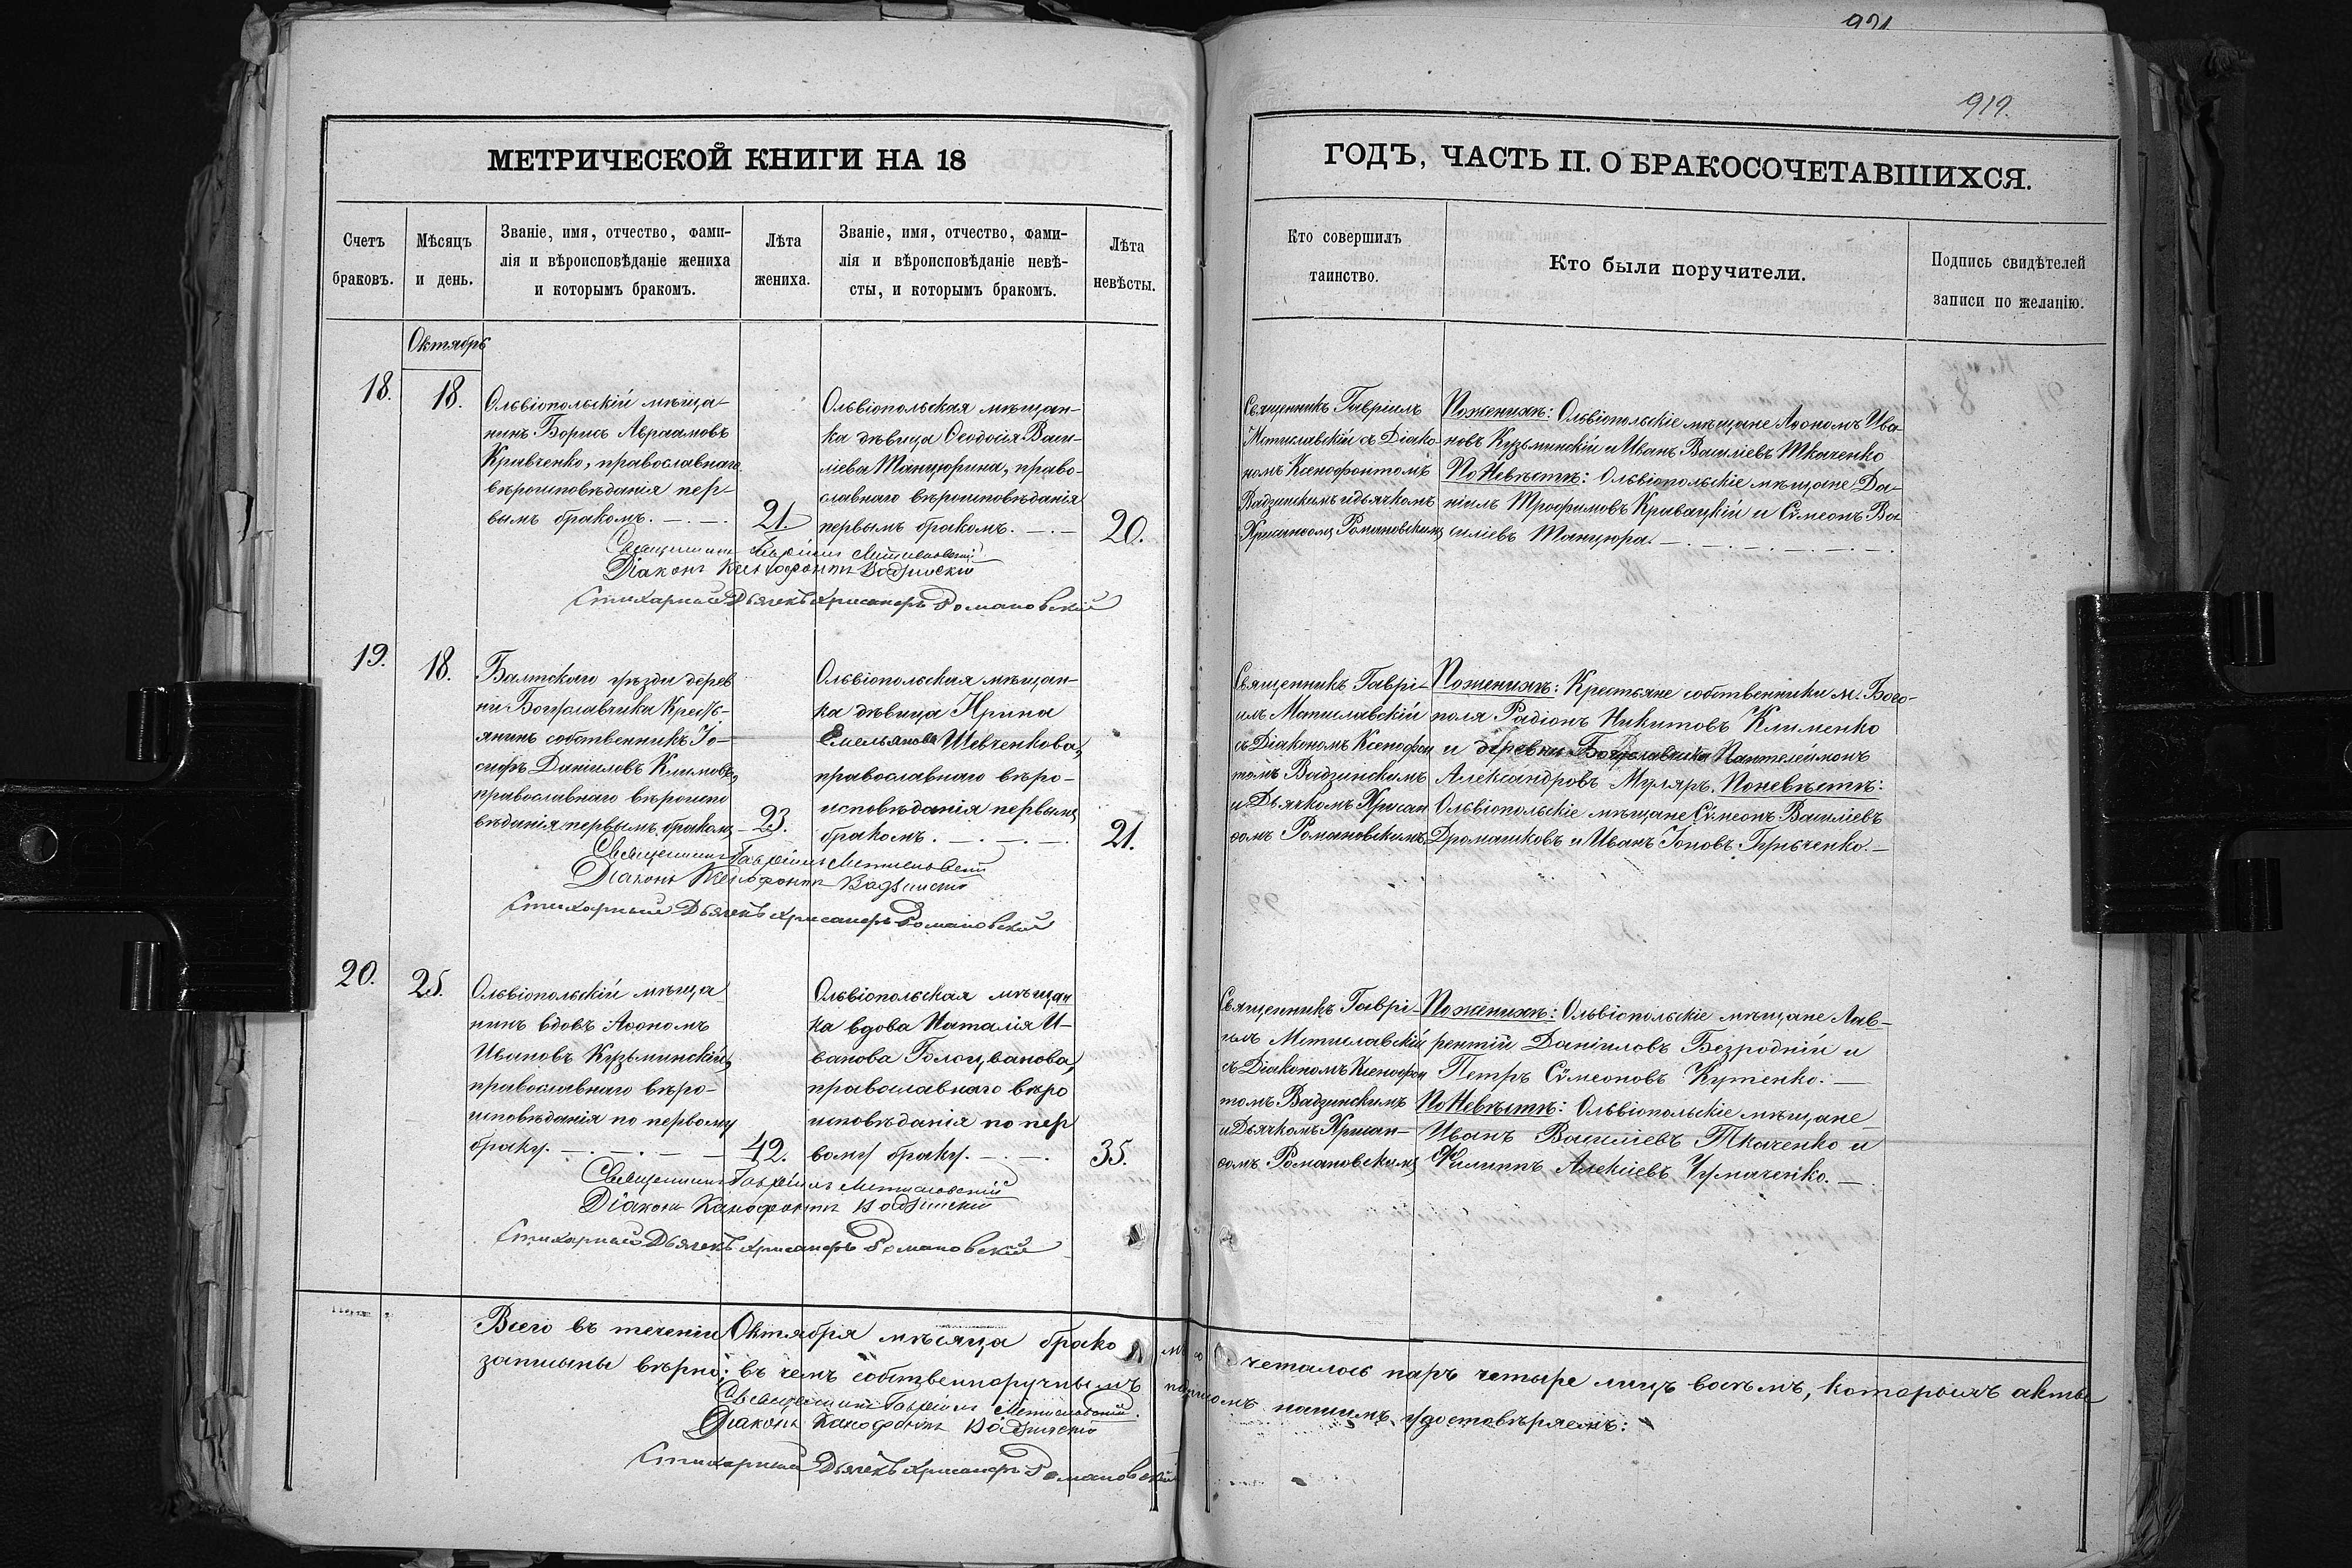 921
919.
МЕТРИЧЕСКОЙ КНИГИ НА 18
ГОДЪ, ЧАСТЬ II. О БРАКОСОЧЕТАВШИХСЯ.
Счетъ
браковъ.
Мѣсяцъ
и день.
Званіе, имя, отчество, фами-
лія и вѣроисповѣданіе жениха
и которымъ бракомъ.
Лѣта
жениха.
Званіе, имя, отчество, фами-
лія и вѣроисповѣданіе невѣ-
сты, и которымъ бракомъ.
Лѣта
невѣсты.
Кто совершилъ
таинство.
Кто были поручители.
Подпись свидѣтелей
записи по желанію.
Октябрь
18.
18.
Ольвіопольскій мѣща-
нинъ Борисъ Авраамовъ
Кравченко, православнаго
вѣроисповѣданія пер-
вымъ бракомъ.
21.
Ольвіопольская мѣщан-
ка дѣвица Ѳеодосія Васи-
ліева Танцюрина, право-
славнаго вѣроисповѣданія
первымъ бракомъ.
20.
Священникъ Гавріилъ
Мстиславскій съ Діако-
номъ Ксенофонтомъ
Вадзинскимъ и дьячкомъ
Хрисанѳомъ Романовскимъ
По женихѣ: Ольвіопольскіе мѣщане Аѳономъ Ива-
новъ Кузьминскій и Иванъ Василіевъ Ткаченко
По Невѣстѣ: Ольвіопольскіе мѣщане Да-
ніилъ Трофимовъ Кравацкій и Сѵмеонъ Ва-
силіевъ Танцюра.
Священникъ Гавріилъ Мстиславскій
Діаконъ Ксенофонтъ Вадзинскій
Стихарный Дьячекъ Хрисанфъ Романовскій
19.
18.
Балтскаго уѣзда дерев
ни Богуславчика Кресть-
янинъ собственникъ Іо-
сифъ Даніиловъ Климовъ,
православнаго вѣроиспо
вѣданія первымъ бракомъ
23.
Ольвіопольская мѣщан-
ка дѣвица Ирина
Емельянова Шевченкова,
православнаго вѣро-
исповѣданія первымъ
бракомъ.
21.
Священникъ Гаврі-
илъ Мстиславскій
съ Діакономъ Ксенофон
томъ Вадзинскимъ
и Дьячкомъ Хрисан
ѳомъ Романовскимъ
По женихѣ: Крестьяне собственники м. Бого-
поля Радіонъ Никитовъ Клименко
и деревни Богуславчика Пантелеймонъ
Александровъ Муляръ. По невѣстѣ:
Ольвіопольскіе мѣщане Сѵмеонъ Василіевъ
Дромашковъ и Иванъ Іоновъ Гриченко.
Священникъ Гавріилъ Мстиславскій
Діаконъ Ксенофонтъ Вадзинскій
Стихарный Дьячекъ Хрисанфъ Романовскій
20.
25.
Ольвіопольскій мѣща
нинъ вдовъ Аѳономъ
Ивановъ Кузьминскій,
православнаго вѣро-
исповѣданія по первому
браку.
42.
Ольвіопольская мѣщан
ка вдова Наталія И-
ванова Голоцванова,
православнаго вѣро
исповѣданія по пер
вому браку.
35.
Священникъ Гаврі-
илъ Мстиславскій
съ Діакономъ Ксенофон
томъ Вадзинскимъ
и Дьячкомъ Хрисан-
ѳомъ Романовскимъ
По женихѣ: Ольвіопольскіе мѣщане Лав-
рентій Даніиловъ Безродній и
Петръ Сѵмеоновъ Кутенко.
По Невѣстѣ: Ольвіопольскіе мѣщане
Иванъ Василіевъ Ткаченко и
Филиппъ Алексіевъ Чумаченко.
Священникъ Гавріилъ Мстиславскій
Діаконъ Ксенофонтъ Вадзинскій
Стихарный Дьячекъ Хрисанфъ Романовскій
Всего въ теченіи Октября мѣсяца бракомъ сочеталось паръ четыре лицъ восемь, которыхъ акты
записаны вѣрно; въ чемъ собственноручнымъ подписомъ нашимъ удостовѣряемъ:
Священникъ Гавріилъ Мстиславскій.
Діаконъ Ксенофонтъ Вадзинскій
Стихарный Дьячекъ Хрисанфъ Романовскій